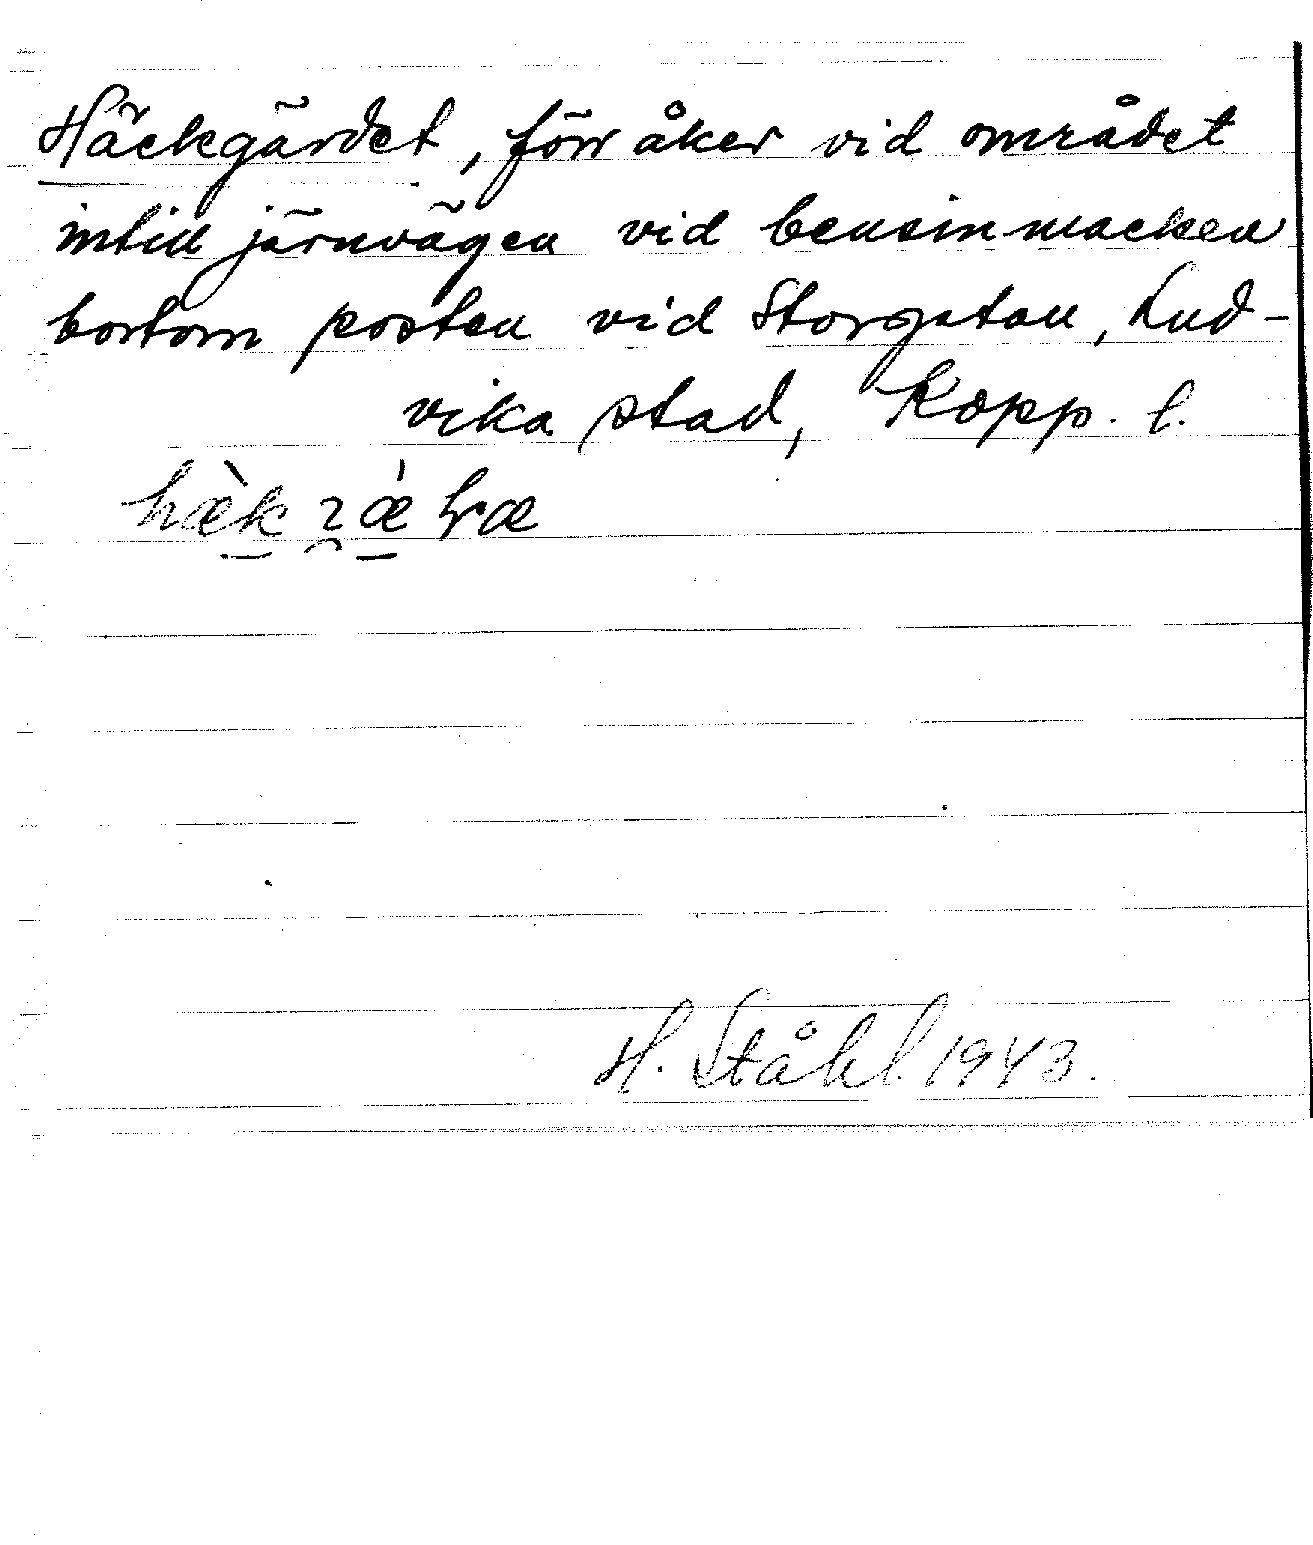 Häckgärdet, förr åker vid området
intill järnvägen vid bensinmacken
bortom posten vid Storgatan, Lud-
vika stad, Kopp. l.
H. Ståhl. 1943.